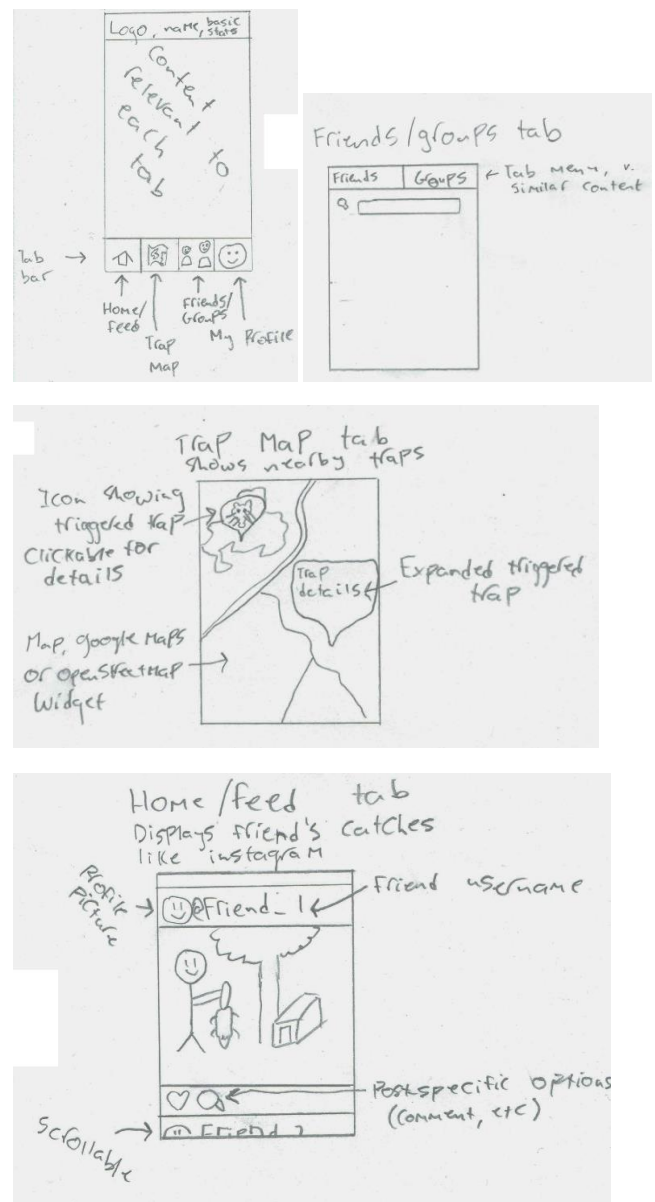 Logo, name, basic stats
Content
relevant to
each
tab
Tab
bar
Home/
feed
Trap
Map
Friends/
Groups
My Profile
Friends/groups tab
Friends
Groups
Tab menu, v.
similar content
Trap Map tab
shows nearby traps
Icon showing
triggered trap
Clickable for
details
Trap
details
Expanded triggered
trap
Map, google maps
or openstreetmap
widget
Home/feed tab
Displays friend's catches
like instagram
Profile
Picture
@Friend_1
Friend username
Post specific options
(comment, etc)
Scrollable
Friend_2